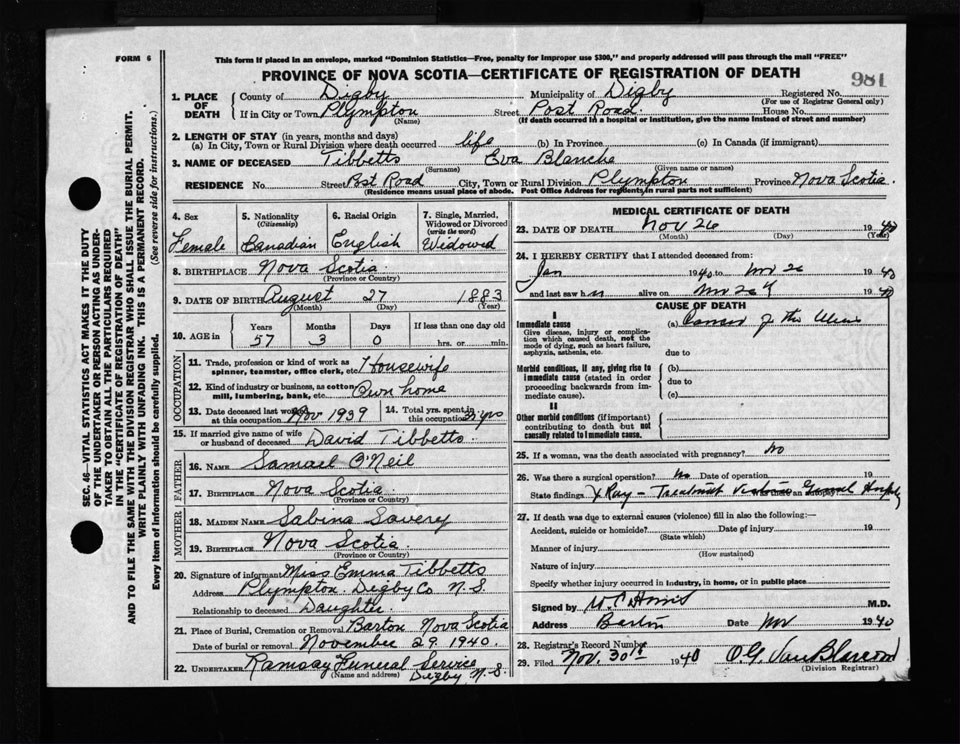 FORM 6
This form if placed in an envelope, marked "Dominion Statistics—Free, penalty for improper use $300," and properly addressed will pass through the mail "FREE"
PROVINCE OF NOVA SCOTIA—CERTIFICATE OF REGISTRATION OF DEATH
981
1. PLACE OF DEATH
County of Digby Municipality of Digby Registered No.
(For use of Registrar General only)
If in City or Town Plympton Street Post Road House No.
(Name) (If death occurred in a hospital or institution, give the name instead of street and number)
2. LENGTH OF STAY (in years, months and days)
(a) In City, Town or Rural Division where death occurred life (b) In Province (c) In Canada (if immigrant)
3. NAME OF DECEASED Tibbetts Eva Blanche
(Surname) (Given name or names)
RESIDENCE No. Street Post Road City, Town or Rural Division Plympton Province Nova Scotia
(Residence means usual place of abode. Post Office Address for residents in rural parts not sufficient)
4. Sex
Female
5. Nationality
(Citizenship)
Canadian
6. Racial Origin
English
7. Single, Married, Widowed or Divorced
(write the word)
Widowed
8. BIRTHPLACE Nova Scotia
(Province or Country)
9. DATE OF BIRTH August 27 1883
(Month) (Day) (Year)
10. AGE in
Years Months Days If less than one day old
57 3 0 hrs. or min.
OCCUPATION
11. Trade, profession or kind of work as spinner, teamster, office clerk, etc. Housewife
12. Kind of industry or business, as cotton mill, lumbering, bank, etc. Own home
13. Date deceased last worked at this occupation Nov 1939
14. Total yrs. spent in this occupation yrs
15. If married give name of wife or husband of deceased David Tibbetts
FATHER
16. NAME Samuel O'Neil
17. BIRTHPLACE Nova Scotia
(Province or Country)
MOTHER
18. MAIDEN NAME Sabina Savery
19. BIRTHPLACE Nova Scotia
(Province or Country)
20. Signature of informant Miss Emma Tibbetts
Address Plympton. Digby Co N.S.
Relationship to deceased Daughter
21. Place of Burial, Cremation or Removal Barton Nova Scotia
Date of burial or removal November 29 1940.
22. UNDERTAKER Ramsay Funeral Service
(Name and address) Digby N.S.
MEDICAL CERTIFICATE OF DEATH
23. DATE OF DEATH Nov 26 1940
(Month) (Day) (Year)
24. I HEREBY CERTIFY that I attended deceased from:
Jan 1940 to Nov 26 1940
and last saw h alive on Nov 26 1940
CAUSE OF DEATH
I
Immediate cause
Give disease, injury or complication which caused death, not the mode of dying, such as heart failure, asphyxia, asthenia, etc.
(a) of the
due to
Morbid conditions, if any, giving rise to immediate cause (stated in order proceeding backwards from immediate cause).
(b)
due to
(c)
II
Other morbid conditions (if important) contributing to death but not causally related to immediate cause.
25. If a woman, was the death associated with pregnancy? no
26. Was there a surgical operation? no Date of operation 19
State findings X Ray — Treatment Victoria General Hospital
27. If death was due to external causes (violence) fill in also the following:—
Accident, suicide or homicide? Date of injury 19
(State which)
Manner of injury
(How sustained)
Nature of injury
Specify whether injury occurred in industry, in home, or in public place
Signed by M.D.
Address Barton Date Nov 1940
28. Registrar's Record Number
29. Filed Nov. 30th 1940 O.G. Van Blarcom
(Division Registrar)
SEC. 46—VITAL STATISTICS ACT MAKES IT THE DUTY
OF THE UNDERTAKER OR PERSON ACTING AS UNDER-
TAKER TO OBTAIN ALL THE PARTICULARS REQUIRED
IN THE "CERTIFICATE OF REGISTRATION OF DEATH"
AND TO FILE THE SAME WITH THE DIVISION REGISTRAR WHO SHALL ISSUE THE BURIAL PERMIT.
WRITE PLAINLY WITH UNFADING INK. THIS IS A PERMANENT RECORD.
Every item of Information should be carefully supplied. (See reverse side for instructions.)